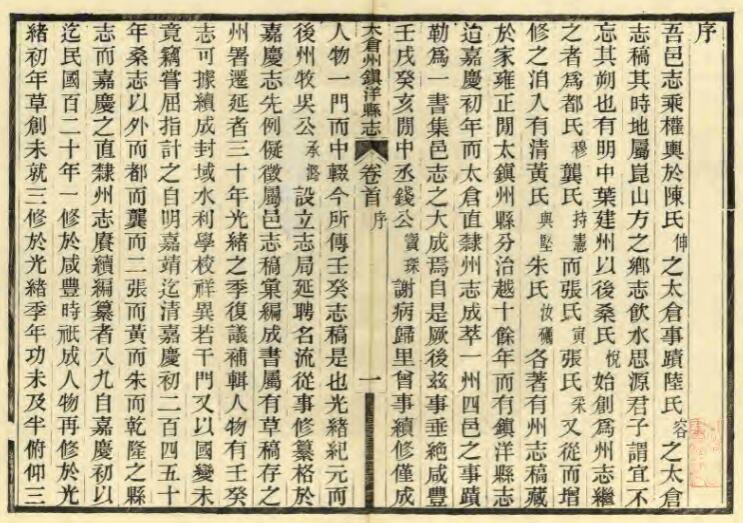 序
吾邑志乘權輿於陳氏伸之太倉事蹟陸氏容之太倉
志稿其時地屬崑山方之鄉志飲水思源君子謂宜不
忘其朔也有明中葉建州以後桑氏悅始創為州志繼
之者為都氏穆龔氏持憲而張氏寅張氏采又從而增
修之洎人有清黃氏與堅朱氏汝礪各著有州志稿藏
於家雍正閒太鎮州縣分治越十餘年而有鎮洋縣志
迨嘉慶初年而太倉直隸州志成萃一州四邑之事蹟
勒為一書集邑志之大成焉自是厥後玆事垂絶咸豐
壬戌癸亥閒中丞錢公寶琛謝病歸里曾事續修僅成
太倉州鎮洋縣志 卷首 序 一
人物一門而中輟今所傳壬癸志稿是也光緒紀元而
後州牧吳公承潞設立志局延聘名流從事修纂格於
嘉慶志先例儗徵屬邑志稿彙編成書屬有草稿存之
州署遷延者三十年光緒之季復議補輯人物有壬癸
志可據續成封域水利學校祥異若干門又以國變未
竟竊嘗屈指計之自明嘉靖迄清嘉慶初二百四五十
年桑志以外而都而龔而二張而黃而朱而乾隆之縣
志而嘉慶之直隸州志賡續編纂者八九自嘉慶初以
迄民國百二十年一修於咸豐時祇成人物再修於光
緒初年草創未就三修於光緒季年功未及半俯仰三